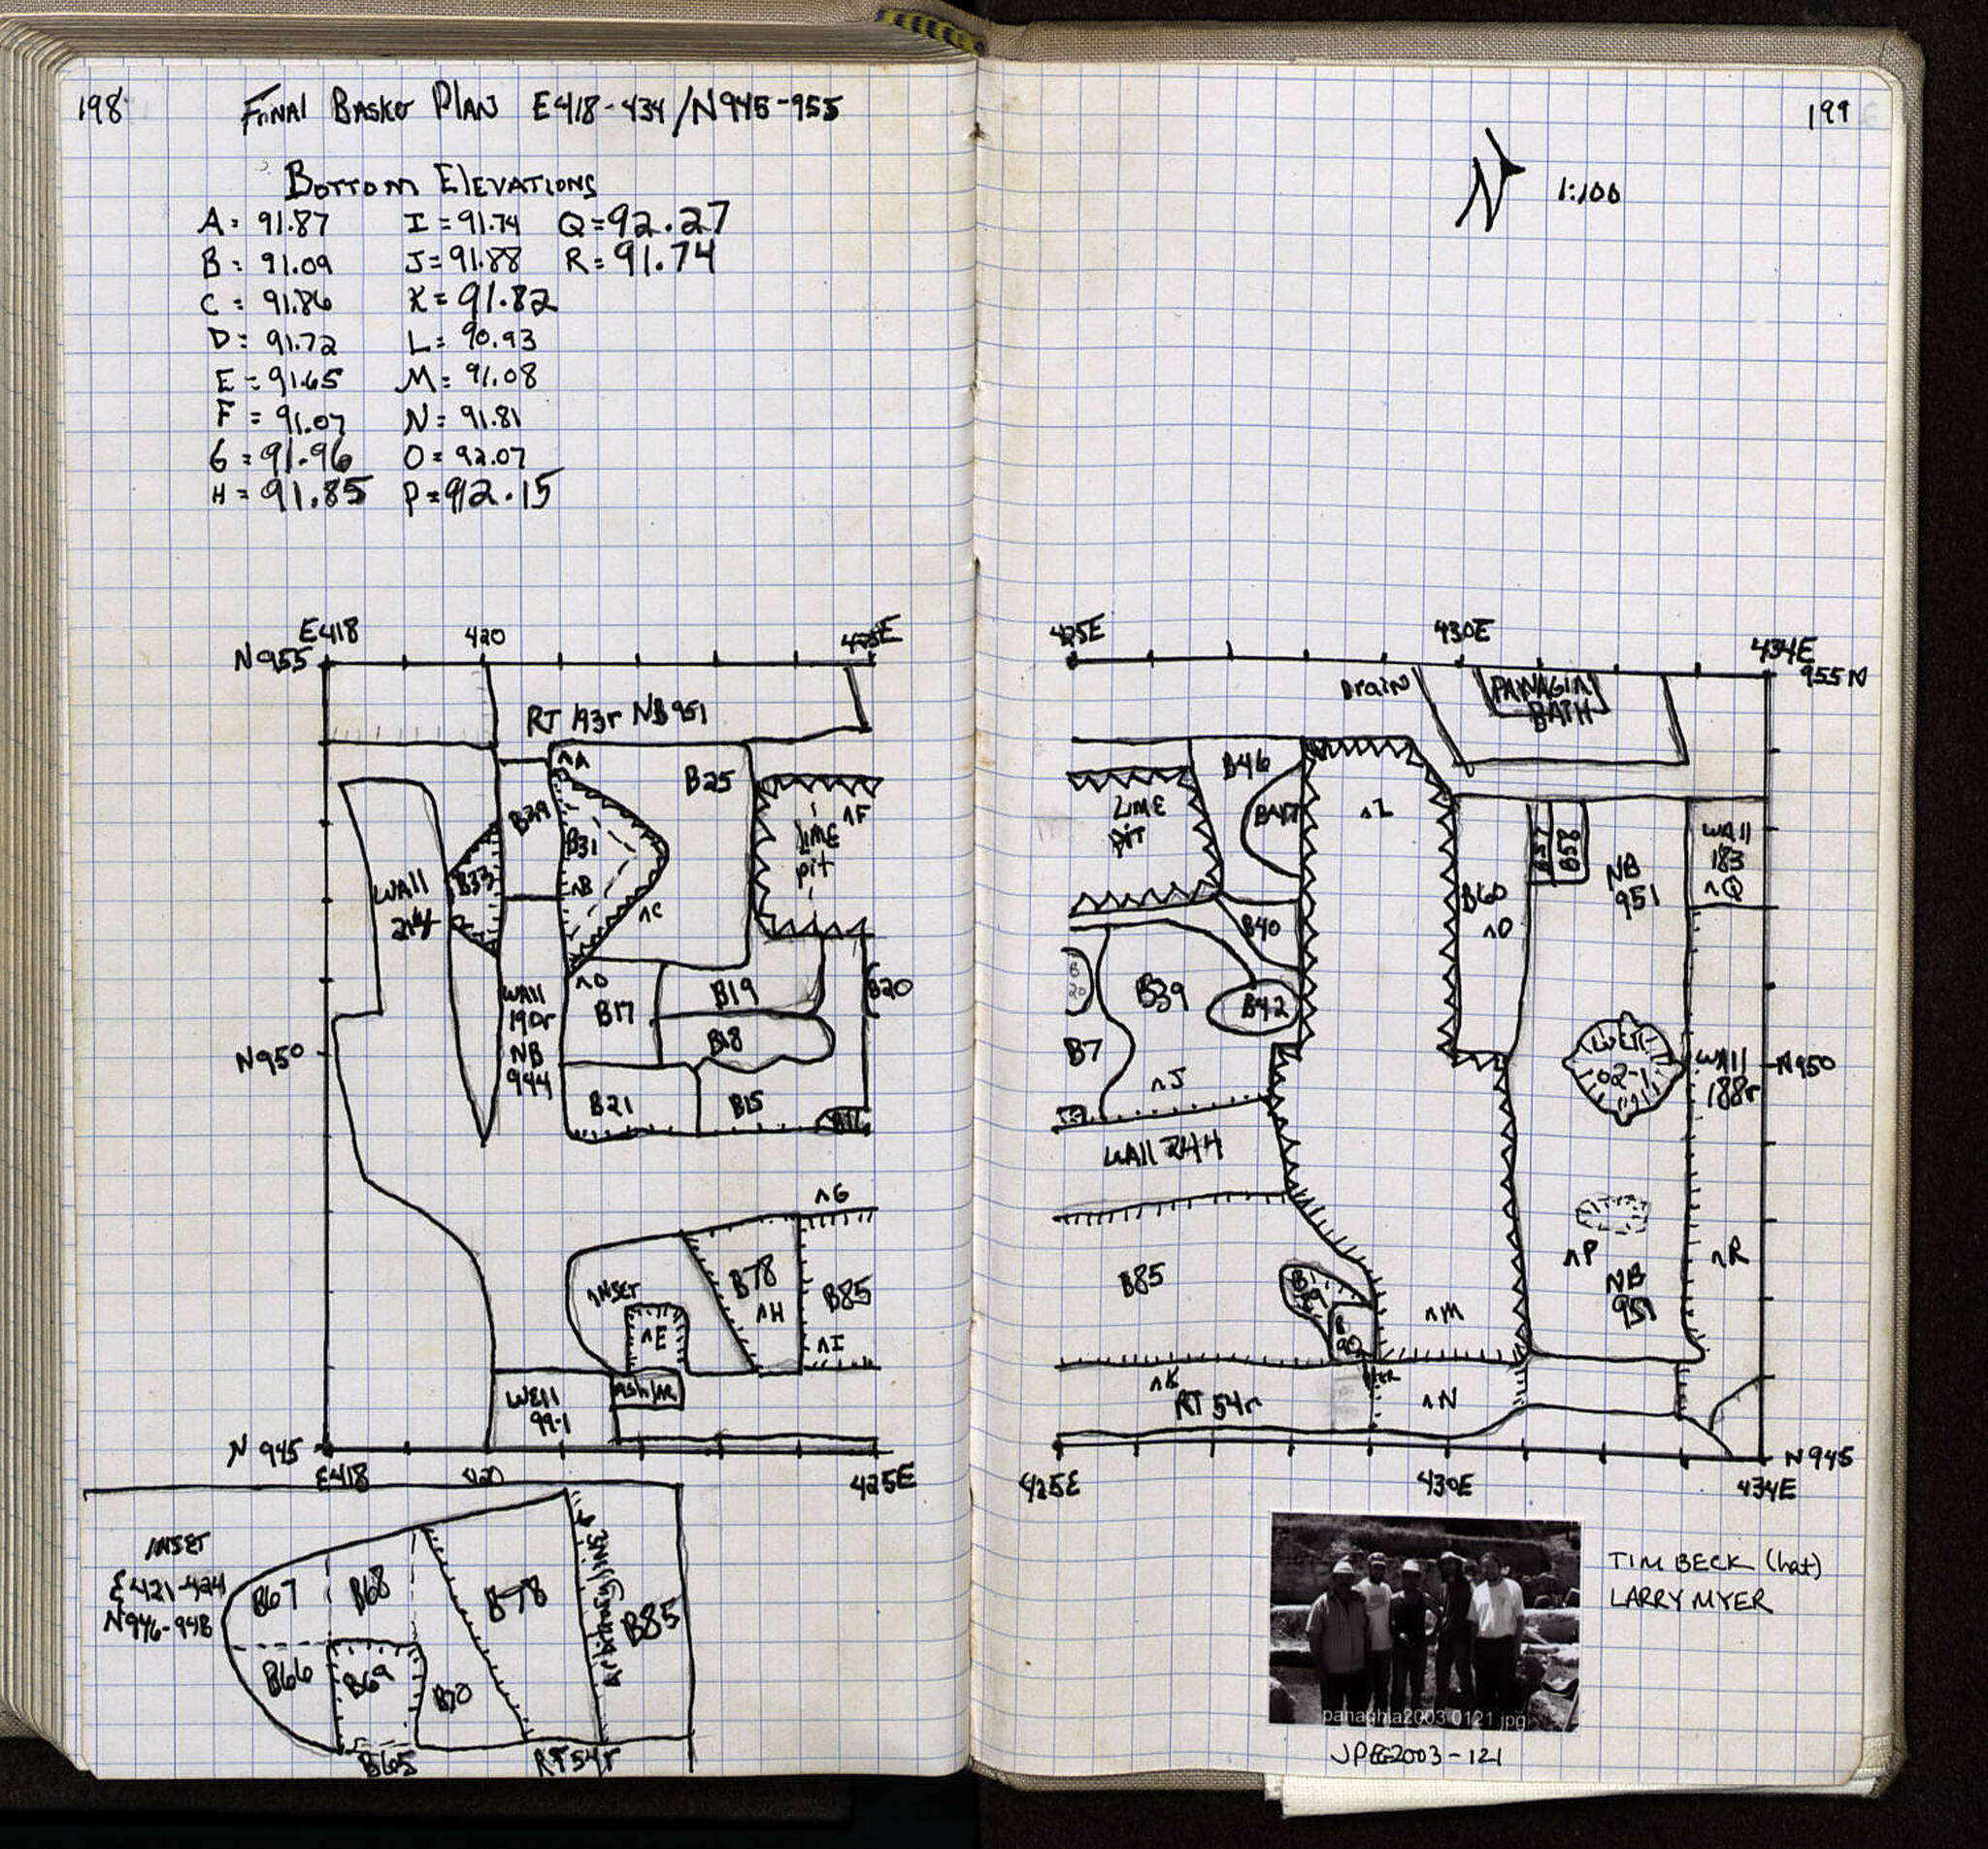 198
Final Basket Plan E418-434/N945-955
Bottom Elevations
A = 91.87 I = 91.74 Q = 92.27
B = 91.09 J = 91.88 R = 91.74
C = 91.86 K = 91.82
D = 91.72 L = 90.93
E = 91.65 M = 91.08
F = 91.07 N = 91.81
G = 91.96 O = 92.07
H = 91.85 P = 92.15
E418 420 425E
N955
RT 193r NB 951
^A
B25
B29
B31
^F
Lime
pit
Wall
214
B33
^B
^C
^D
Wall
190r
NB
944
B17
B19
B20
B18
N950
B21
B15
B16
^G
INSET
B78
^H
B85
^E
^I
Well
99-1
Ashlar
N 945
E418 420 425E
INSET
E421-424
N946-948
B67
B68
B78
B85
B66
B69
B70
B65
RT 54r
199
N
1:100
425E 430E 434E
955 N
Drain
PANAGIA
BATH
B46
B47
Lime
pit
^L
B57
B58
NB
951
Wall
183
^Q
B60
^O
B40
B
20
B39
B42
B7
^J
Well
02-1
Wall
188r
N950
Wall 244
B85
^P
NB
951
^R
^M
B
90
^K
RT 54r
^N
N945
425E 430E 434E
TIM BECK (hat)
LARRY MYER
panaghia2003 0121.jpg
JPEG2003-121